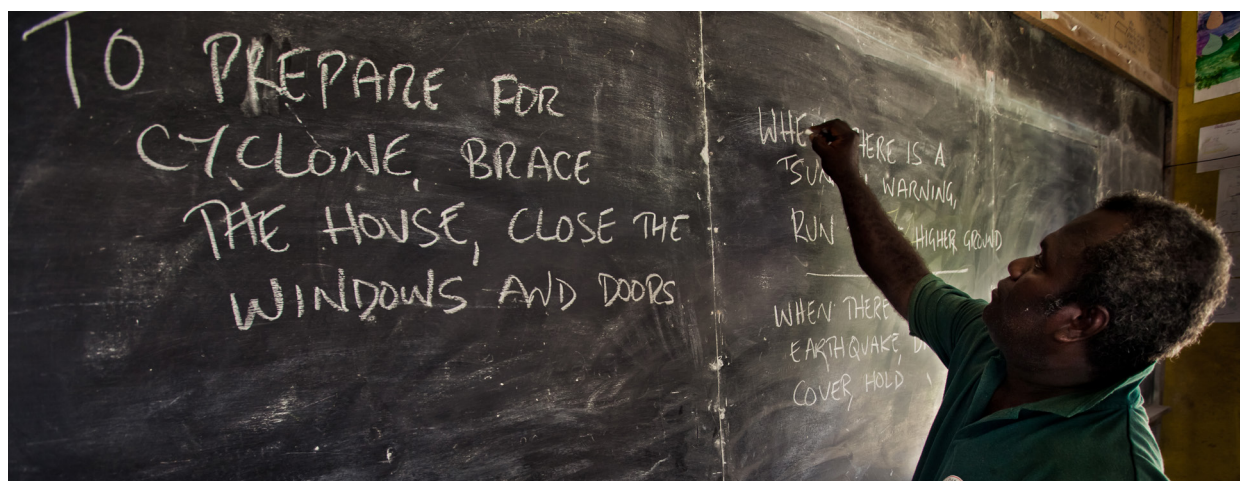 TO PREPARE FOR
CYCLONE, BRACE
THE HOUSE, CLOSE THE
WINDOWS AND DOORS
THERE IS A
WARNING,
RUN HIGHER GROUND
WHEN THERE
EARTHQUAKE,
COVER, HOLD